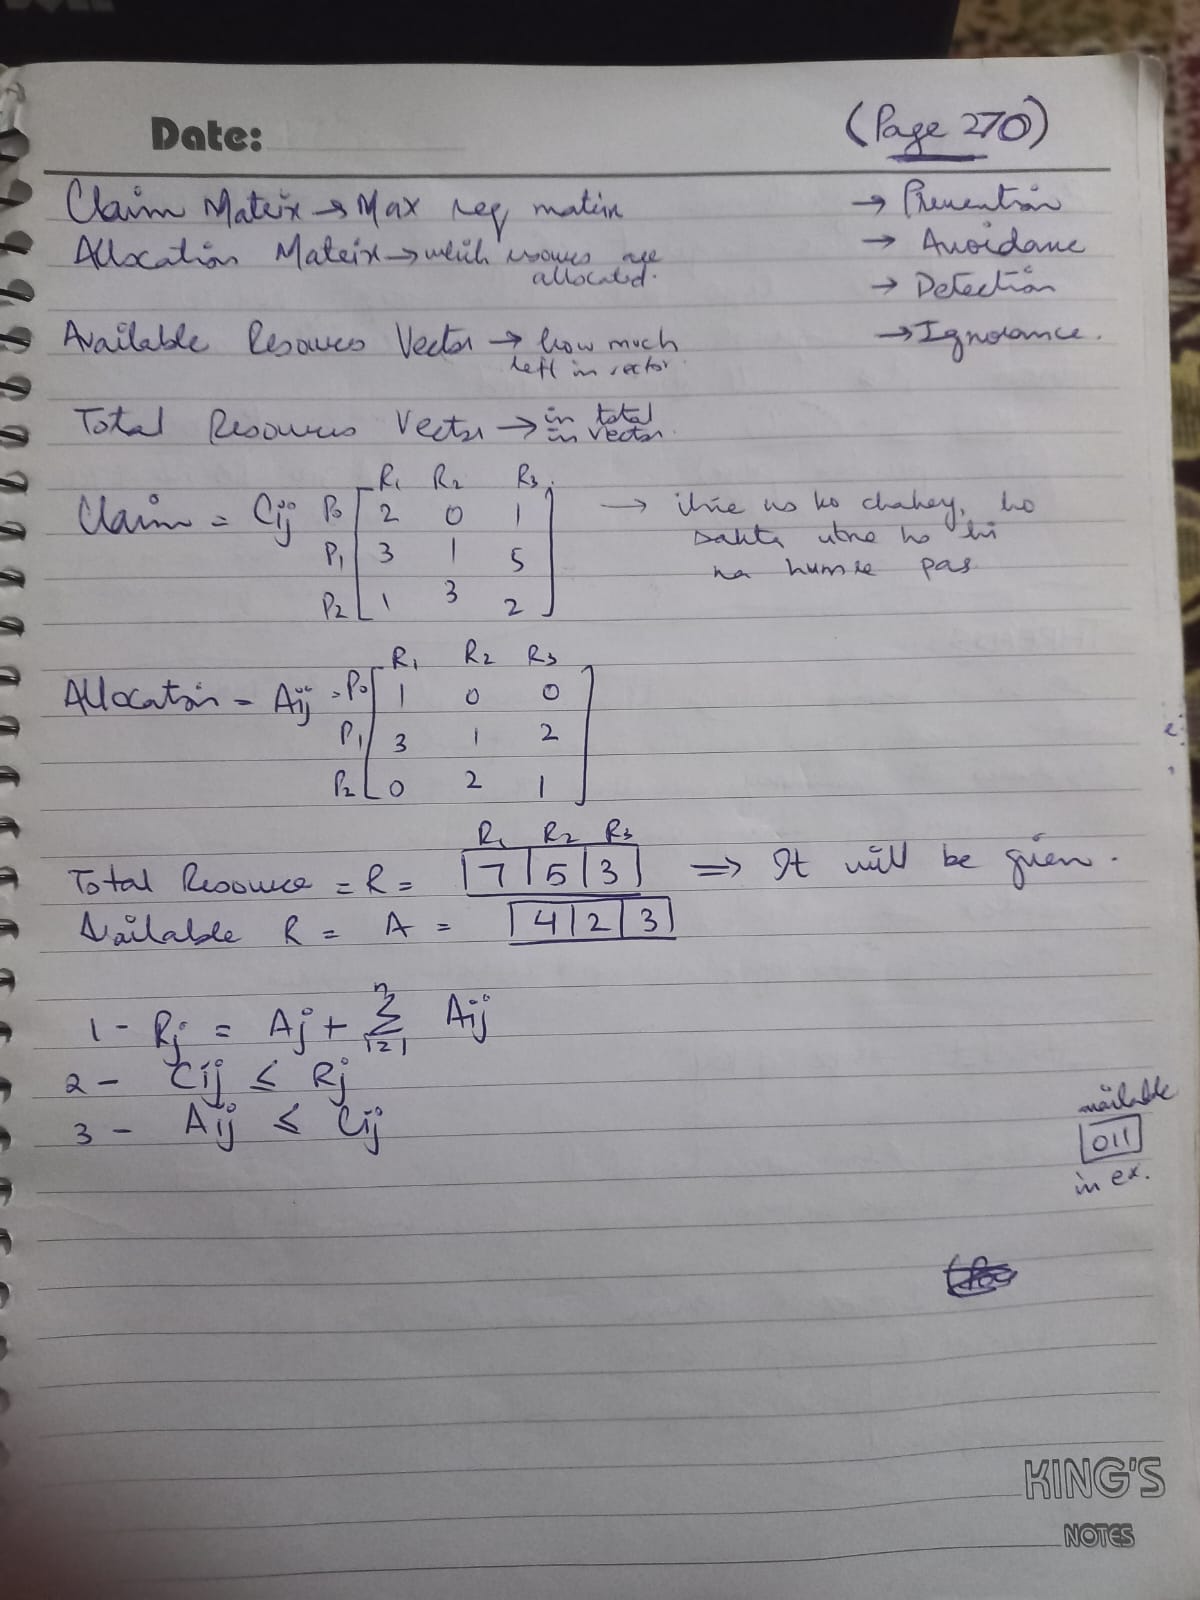 Date:
(Page 270)
Claim Matrix → Max req matrix
→ Prevention
Allocation Matrix → which resources are
allocated.
→ Avoidance
→ Detection
Available Resources Vector → how much
left in vector.
→ Ignorance.
Total Resources Vector → in total
in vector.
R1 R2 R3
Claim = Cij P0 2 0 1
P1 3 1 5
P2 1 3 2
→ itne us ko chahey, ho
sakta utne ho hi
na humre pas
R1 R2 R3
Allocation = Aij = P0 1 0 0
P1 3 1 2
P2 0 2 1
R1 R2 R3
Total Resource = R = 7 5 3 ⇒ It will be given.
Available R = A = 4 2 3
1 - Rj = Aj + n∑i=1 Aij
2 - Cij ≤ Rj
3 - Aij ≤ Cij
available
011
in ex.
KING'S
NOTES